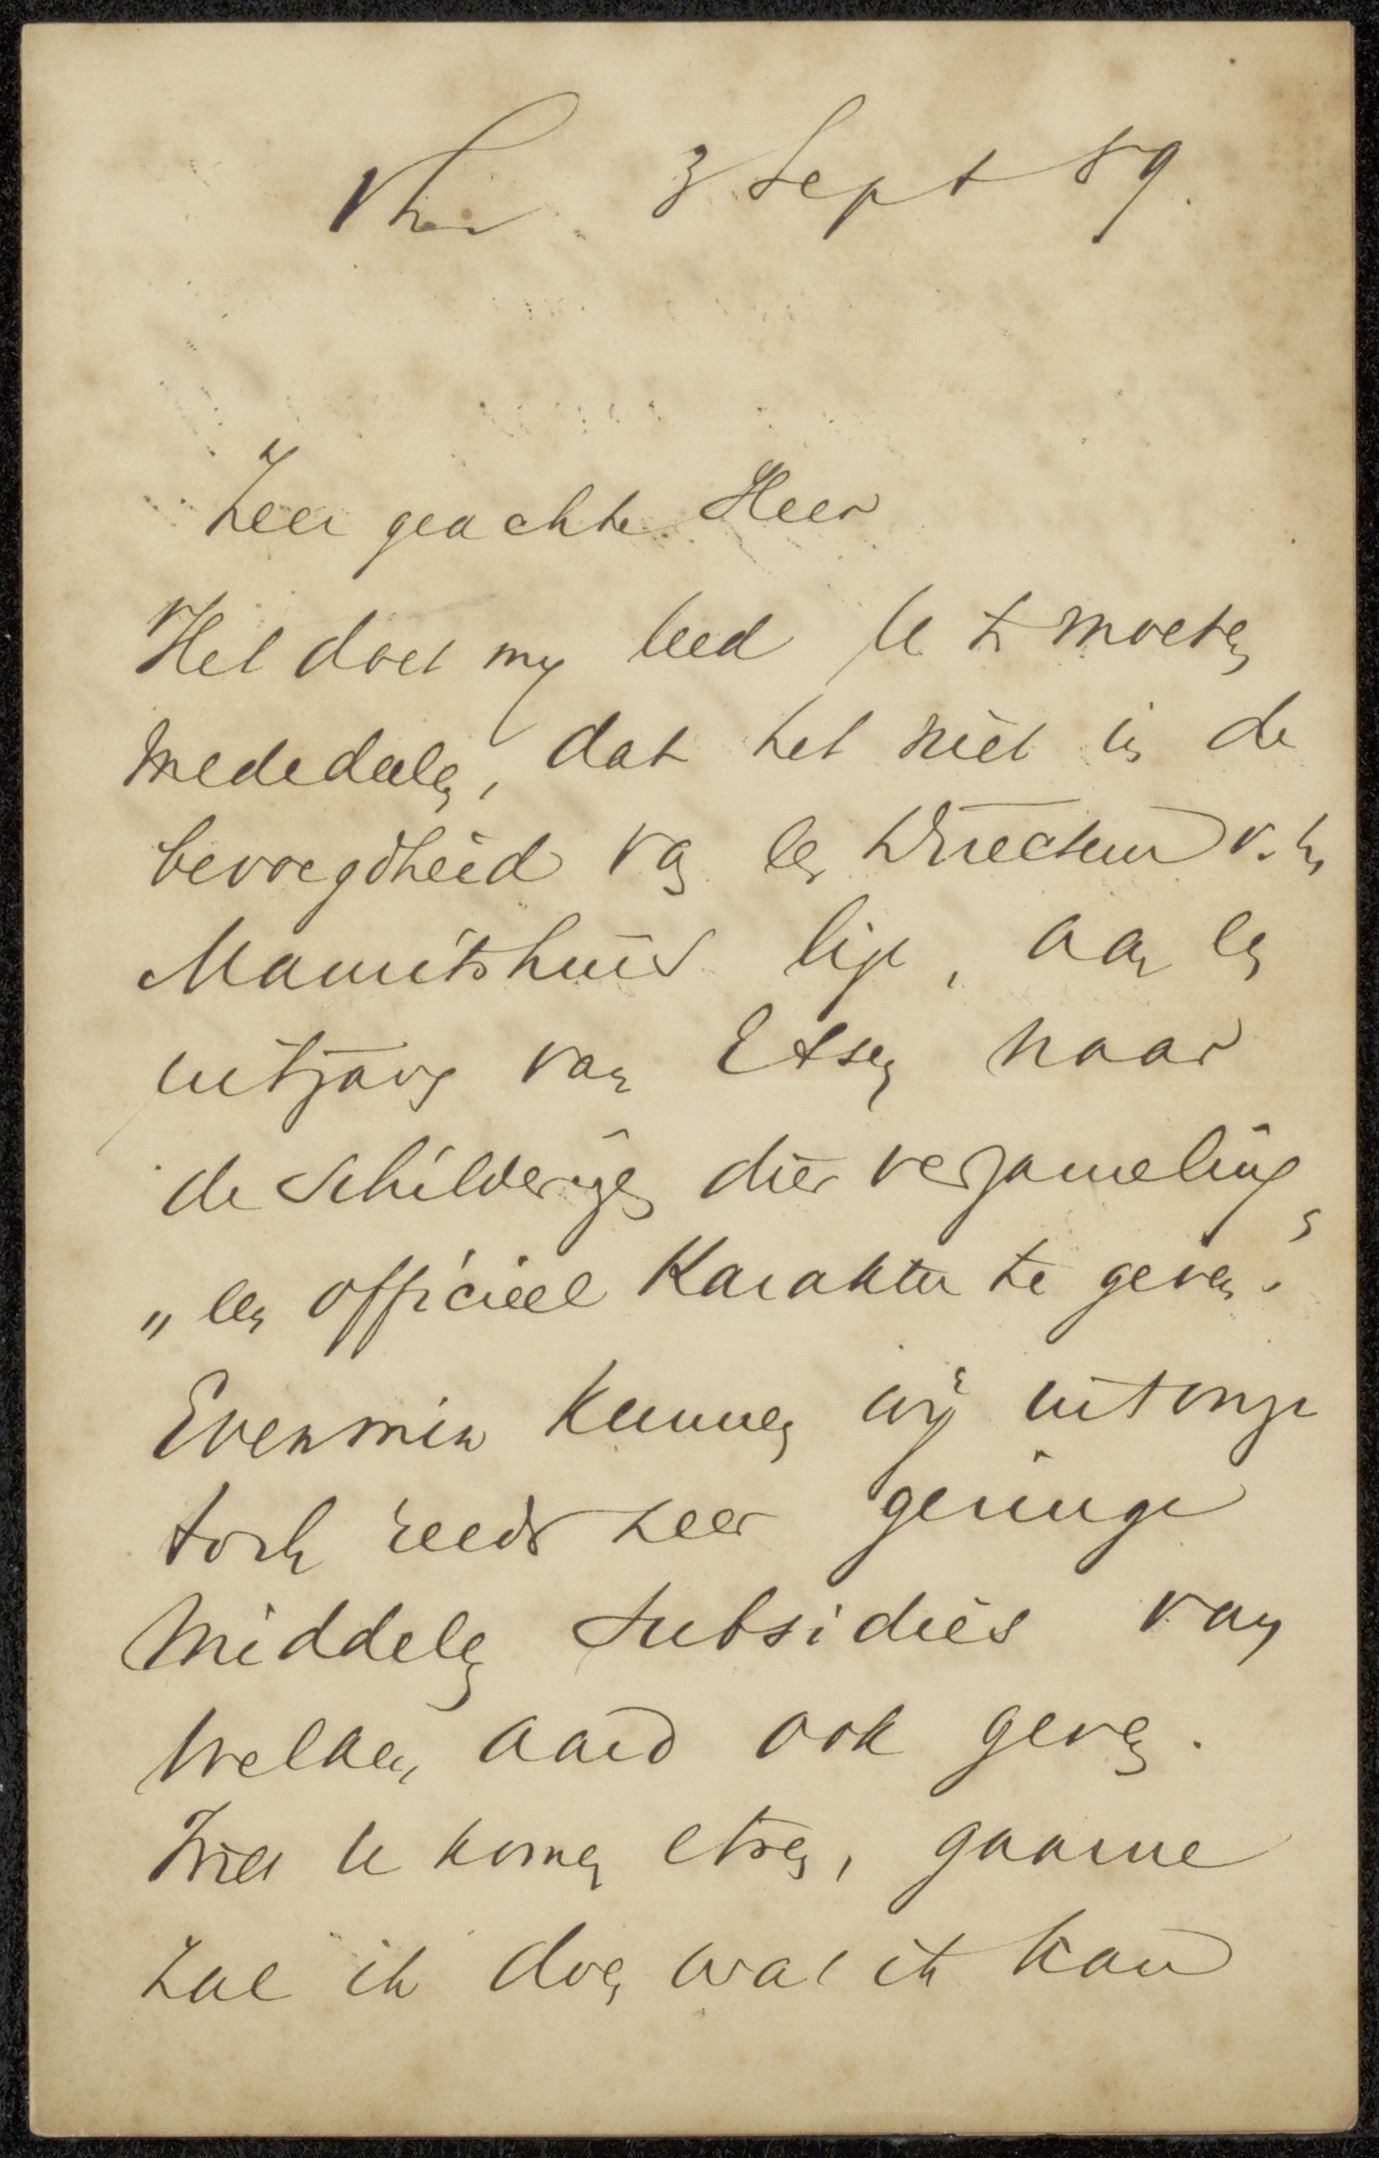 3 Sept 89.
Zeer geachte Heer
Het doet my leed U te moeten
mededeelen, dat het niet in de
bevoegdheid van een Directeur v. h.
Mauritshuis ligt, aan een
uitgave van Etsen naar
de Schilderijen dier verzameling,
„een officieel Karakter te geven."
Evenmin kunnen wij uit onze
toch reeds zeer geringe
middelen subsidies van
welken aard ook geven.
Wilt U komen etsen, gaarne
zal ik doen wat ik kan